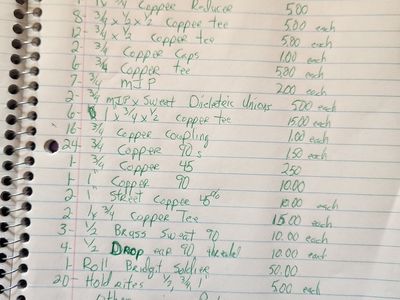 1 x 3/4 Copper Reducer 5.00
8- 3/4 x 1/2 x 1/2 copper tee 5.00 each
12- 3/4 x 1/2 copper tee 5.00 each
2- 3/4 Copper Caps 1.00 each
6- 3/4 Copper tee 5.00 each
7- 3/4 MIP 2.00 each
2- 3/4 MIP x Sweat Dielectric Unions 5.00 each
6- 1 x 3/4 x 1/2 copper tee 15.00 each
16- 3/4 Copper coupling 1.00 each
24- 3/4 Copper 90s 1.50 each
1- 3/4 Copper 45 2.50
1- 1" Copper 90 10.00
2- 1" Street Copper 45° 10.00 each
2- 1 x 3/4 Copper Tee 15.00 each
3- 1/2 Brass Sweat 90 10.00 each
4- 1/2 Drop ear 90 threaded 10.00 each
1- Roll Bridgit Soldier 50.00
20- Hold rites 1/2, 3/4, 1" 5.00 each